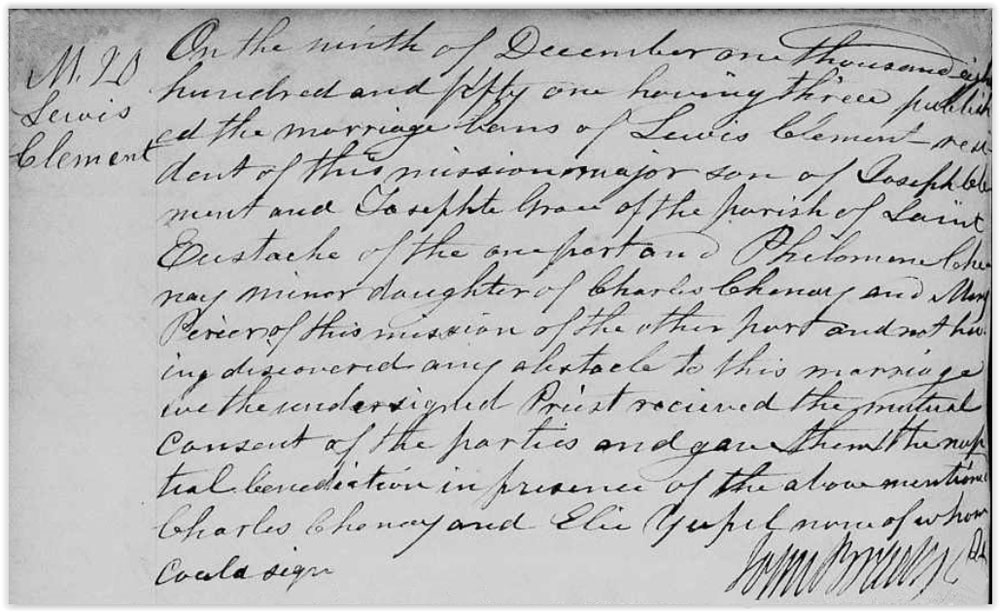 M. 20
Lewis
Clement
On the ninth of December one thousand eigh
hundred and fifty one having three publish
ed the marriage bans of Lewis Clement - resi-
dent of this mission major son of Joseph Cle
ment and Josephte Grace of the parish of Saint
Eustache of the one part and Philomene Che
nay minor daughter of Charles Chenay and Mary
Perier of this mission of the other part and not hav
ing discovered any obstacle to this marriage
we the undersigned Priest recieved the mutual
consent of the parties and gave them the nup
tial benediction in presence of the above mentione
Charles Chenay and Elie none of whom
could sign
John